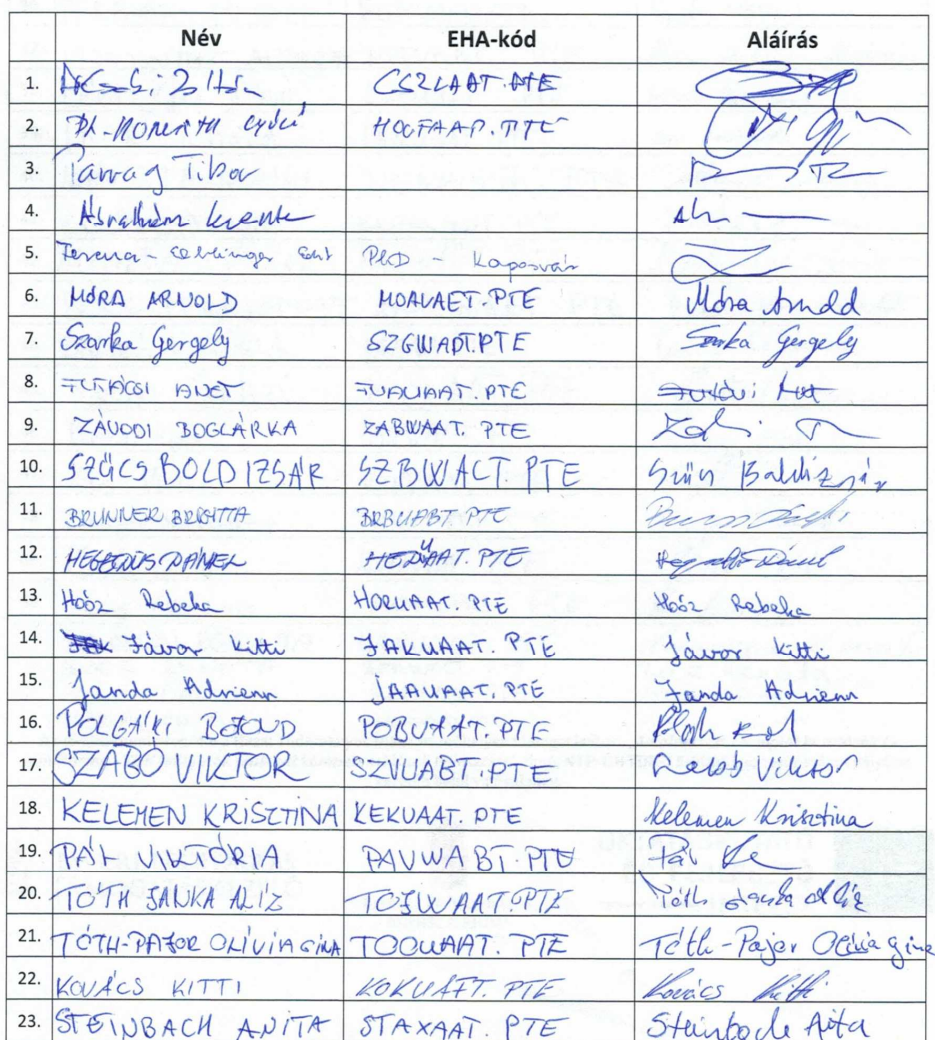 Név EHA-kód Aláírás
1. CSZLAAT.PTE
2. HOGFAAP.PTE
3. Parrag Tibor
4. Ábrahám Levente
5. Ferencz- Edit PhD - Kaposvár
6. MÓRA ARNOLD MOAVAET.PTE Móra Arnold
7. Szarka Gergely SZGWADT.PTE Szarka Gergely
8. ANET FUAUAAT.PTE
9. ZÁVODI BOGLÁRKA ZABWAAT. PTE
10. SZŰCS BOLDIZSÁR SZBWACT. PTE Szűcs Boldizsár
11. BRUNNER BRIGITTA BRBUABT.PTE
12. HEGEDŰS DÁNIEL HEDÜAAT.PTE Hegedűs Dániel
13. Hoóz Rebeka HORUAAT. PTE Hoóz Rebeka
14. Jávor Kitti JAKUAAT. PTE Jávor Kitti
15. Janda Adrienn JAAUAAT. PTE Janda Adrienn
16. POLGÁRI BOTOND POBUAAT.PTE
17. SZABÓ VIKTOR SZVUABT.PTE Szabó Viktor
18. KELEMEN KRISZTINA KEKUAAT. PTE Kelemen Krisztina
19. PÁL VIKTÓRIA PAVWABT.PTE Pál
20. TÓTH JANKA ALÍZ TOJWAAT.PTE Tóth Janka Alíz
21. TÓTH-PAJOR OLÍVIA GINA TOOUAAT. PTE Tóth-Pajor Olívia Gina
22. KOVÁCS KITTI KOKUAFT. PTE Kovács Kitti
23. STEINBACH ANITA STAXAAT. PTE Steinbach Anita